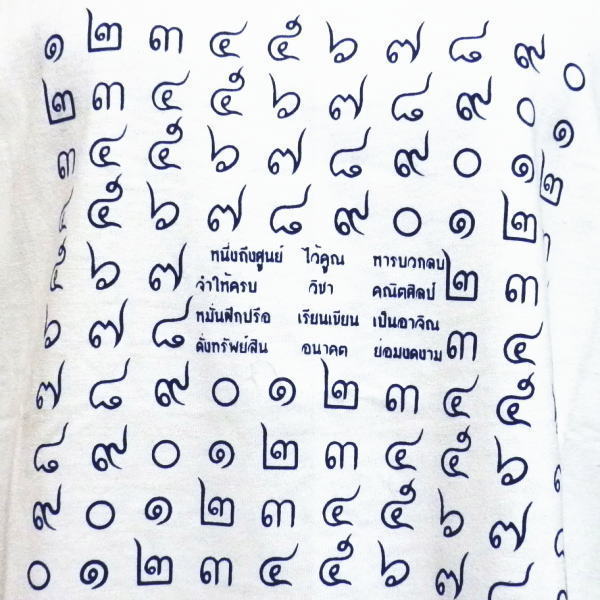 ๑ ๒ ๓ ๔ ๕ ๖ ๗ ๘ ๙ ๐
๒ ๓ ๔ ๕ ๖ ๗ ๘ ๙ ๐ ๑
๓ ๔ ๕ ๖ ๗ ๘ ๙ ๐ ๑ ๒
๔ ๕ ๖ ๗ ๘ ๙ ๐ ๑ ๒
๕ ๖ ๗ หนึ่งถึงศูนย์ ไว้คูณ หารบวกลบ ๒ ๓
จำให้ครบ วิชา คณิตศิลป์
๖ ๗ ๘ หมั่นฝึกปรือ เรียนเขียน เป็นอาจิณ ๓ ๔
ดั่งทรัพย์สิน อนาคต ย่อมงดงาม
๗ ๘ ๙ ๐ ๑ ๒ ๓ ๔ ๕
๘ ๙ ๐ ๑ ๒ ๓ ๔ ๕ ๖
๙ ๐ ๑ ๒ ๓ ๔ ๕ ๖ ๗
๐ ๑ ๒ ๓ ๔ ๕ ๖ ๗ ๘